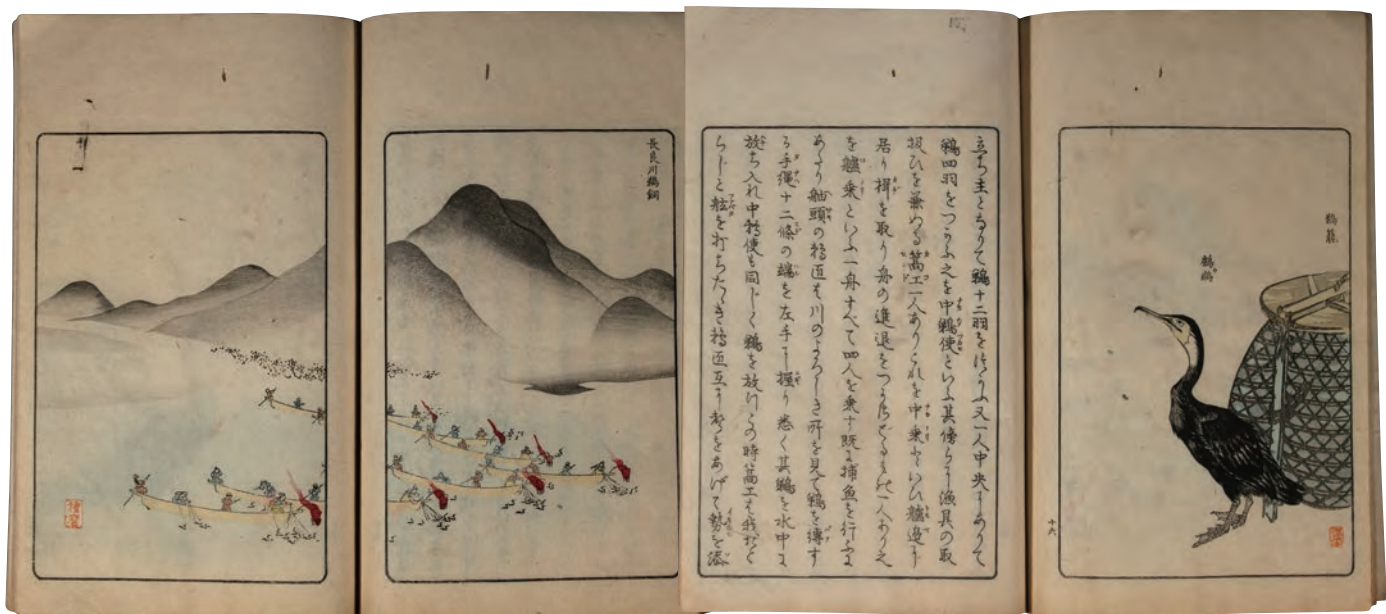 鵜籠
十六
立ち主となりて鵜十二羽をつかふ又一人中央にありて
鵜四羽をつかふ之を中鵜使といふ其傍らに漁具の取
扱ひを兼ぬる篙工一人ありこれを中乗といひ艫邊に
居り楫を取り舟の進退をつかさどるもの一人あり之
を艫乗といふ一舟すべて四人を乗す既に捕魚を行ふに
あたり舳頭の鵜匠は川のよろしき所を見て鵜を縛す
る手縄十二條の端を左手に握り悉く其鵜を水中に
放ち入れ中鵜使も同じく鵜を放けこの時篙工は我おと
らじと舷を打ちたゝき鵜匠互に声をあげて勢を添
長良川鵜飼